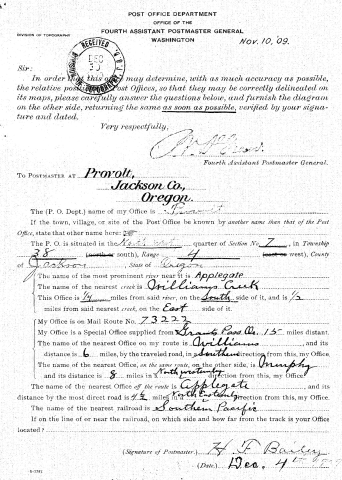 POST OFFICE DEPARTMENT
OFFICE OF THE
FOURTH ASSISTANT POSTMASTER GENERAL
WASHINGTON
DIVISION OF TOPOGRAPHY
Nov. 10, '09.
RECEIVED
DEC
Sir:
In order that this office may determine, with as much accuracy as possible,
the relative positions of Post Offices, so that they may be correctly delineated on
its maps, please carefully answer the questions below, and furnish the diagram
on the other side, returning the same as soon as possible, verified by your signa-
ture and dated.
Very respectfully,
Fourth Assistant Postmaster General.
TO POSTMASTER AT Provolt,
Jackson Co.,
Oregon.
The (P. O. Dept.) name of my Office is Provolt
If the town, village, or site of the Post Office be known by another name than that of the Post
Office, state that other name here:
The P. O. is situated in the quarter of Section No. 7, in Township
38 (north or south), Range 4 (east or west), County
of Jackson State of Oregon
The name of the most prominent river near it is Applegate
The name of the nearest creek is Williams Creek
This Office is 1/4 miles from said river, on the South side of it, and is 1/2
miles from said nearest creek, on the East side of it.
My Office is on Mail Route No. 73222
My Office is a Special Office supplied from Grants Pass Or. 15 miles distant.
The name of the nearest Office on my route is Williams, and its
distance is 6 miles, by the traveled road, in a Southern direction from this, my Office.
The name of the nearest Office, on the same route, on the other side, is Murphy
and its distance is 8 miles in a direction from this, my Office.
The name of the nearest Office off the route is Applegate and its
distance by the most direct road is 4 1/2 miles in a direction from this, my Office.
The name of the nearest railroad is Southern Pacific
If on the line of or near the railroad, on which side and how far from the track is your Office
located?
(Signature of Postmaster.) H F Bailey
(Date.) Dec. 4th